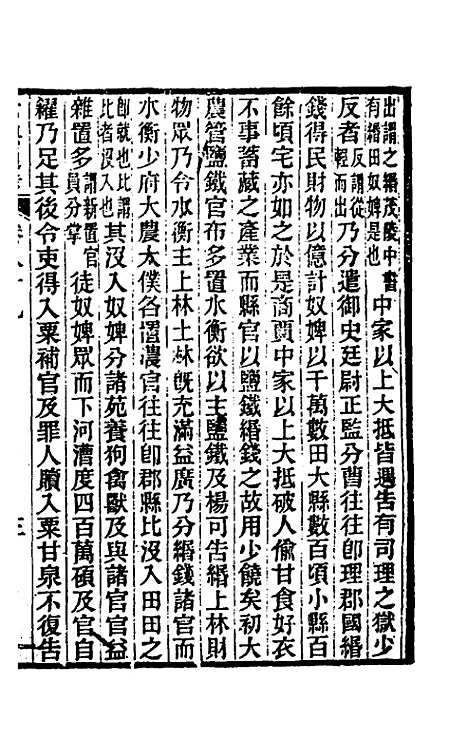 出謂之緡茂陵中書有緡田奴婢是也中家以上大抵皆遇告有司理之獄少
反者反謂從輕而出乃分遣御史廷尉正監分曹往往卽理郡國緡
錢得民財物以億計奴婢以千萬數田大縣數百頃小縣百
餘頃宅亦如之於是商賈中家以上大抵破人偷甘食好衣
不事蓄藏之產業而縣官以鹽鐵緡錢之故用少饒矣初大
農管鹽鐵官布多置水衡欲以主鹽鐵及楊可告緡上林財
物眾乃令水衡主上林上林旣充滿益廣乃分緡錢諸官而
水衡少府大農太僕各置農官往往卽郡縣比沒入田田之
卽就也比謂比者沒入也其沒入奴婢分諸苑養狗禽獸及與諸官官益
雜置多謂新置官員分掌徒奴婢眾而下河漕度四百萬碩及官自
糴乃足其後令吏得入粟補官及罪人贖入粟甘泉不復告
三